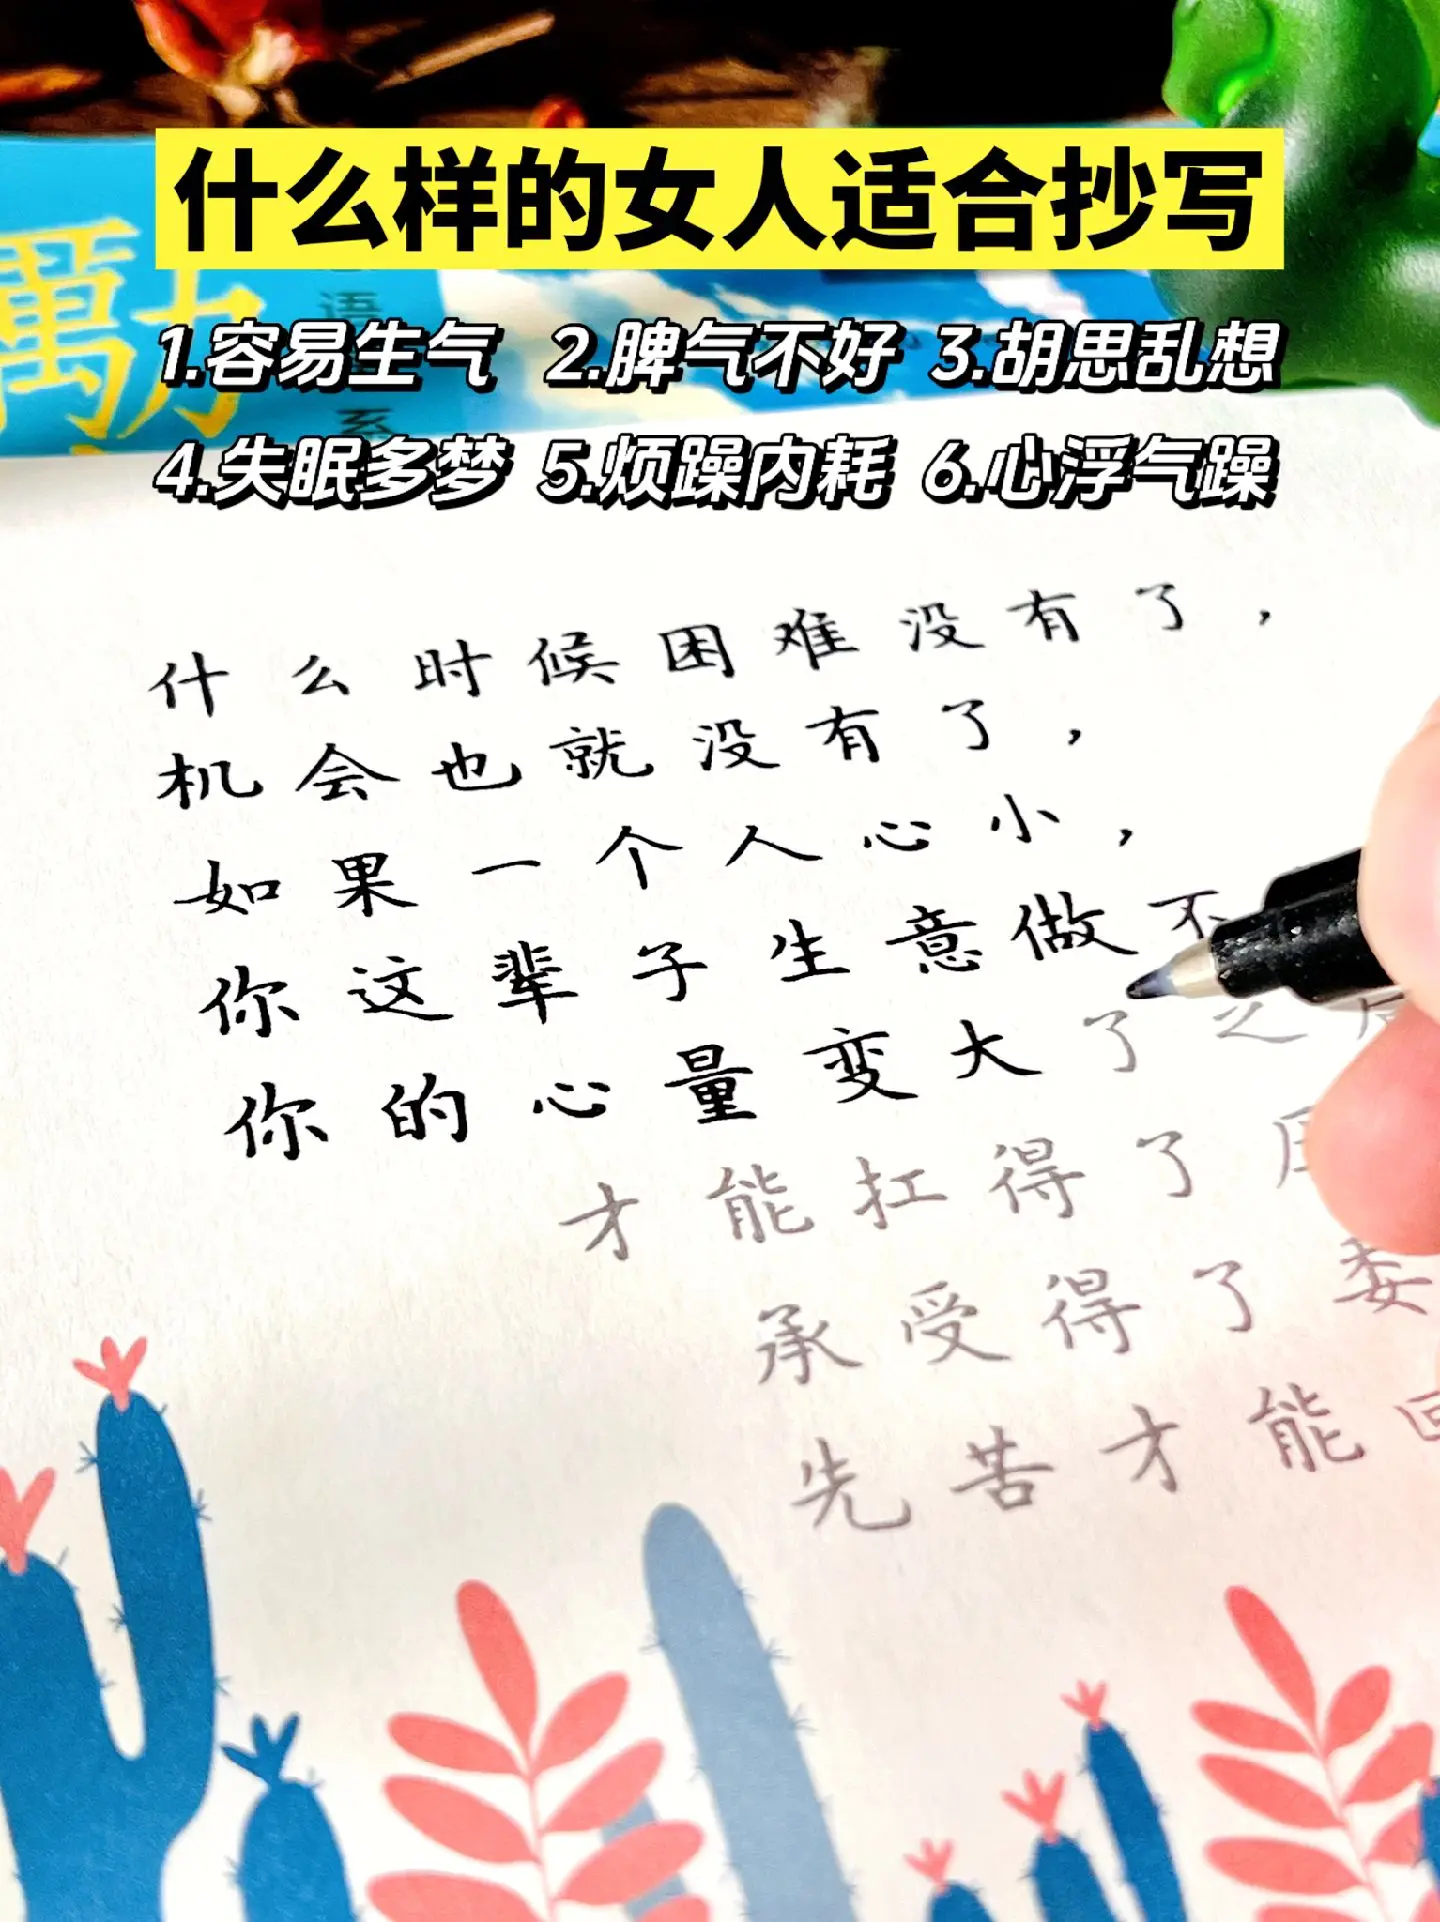 什么样的女人适合抄写
勵
语
系
1.容易生气 2.脾气不好 3.胡思乱想
4.失眠多梦 5.烦躁内耗 6.心浮气躁
什么时候困难没有了，
机会也就没有了，
如果一个人心小，
你这辈子生意做不
你的心量变大了之
才能扛得了
承受得了委
先苦才能回